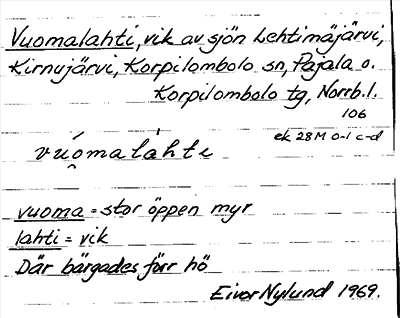 Vuomalahti, vik av sjön Lehtimäjärvi,
Kirnujärvi, Korpilombolo sn, Pajala o.
Korpilombolo tg, Norrb. l.
106
ek 28M 0-1 c-d
vúomalàhti
vuoma = stor öppen myr
lahti = vik
Där bärgades förr hö
Eivor Nylund 1969.